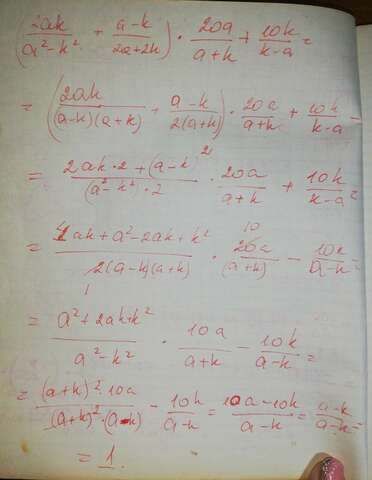 (2ak/(a²-k²) + (a-k)/(2a+2k)) · 20a/(a+k) + 10k/(k-a) =
= (2ak/((a-k)(a+k)) + (a-k)/(2(a+k))) · 20a/(a+k) + 10k/(k-a) =
= (2ak·2+(a-k)²)/((a²-k²)·2) · 20a/(a+k) + 10k/(k-a) =
= (4ak+a²-2ak+k²)/(2(a-k)(a+k)) · 20a/(a+k) - 10k/(a-k) =
1 10
= (a²+2ak+k²)/(a²-k²) · 10a/(a+k) - 10k/(a-k) =
= ((a+k)²·10a)/((a+k)²·(a-k)) - 10k/(a-k) = (10a-10k)/(a-k) = (a-k)/(a-k) =
= 1.